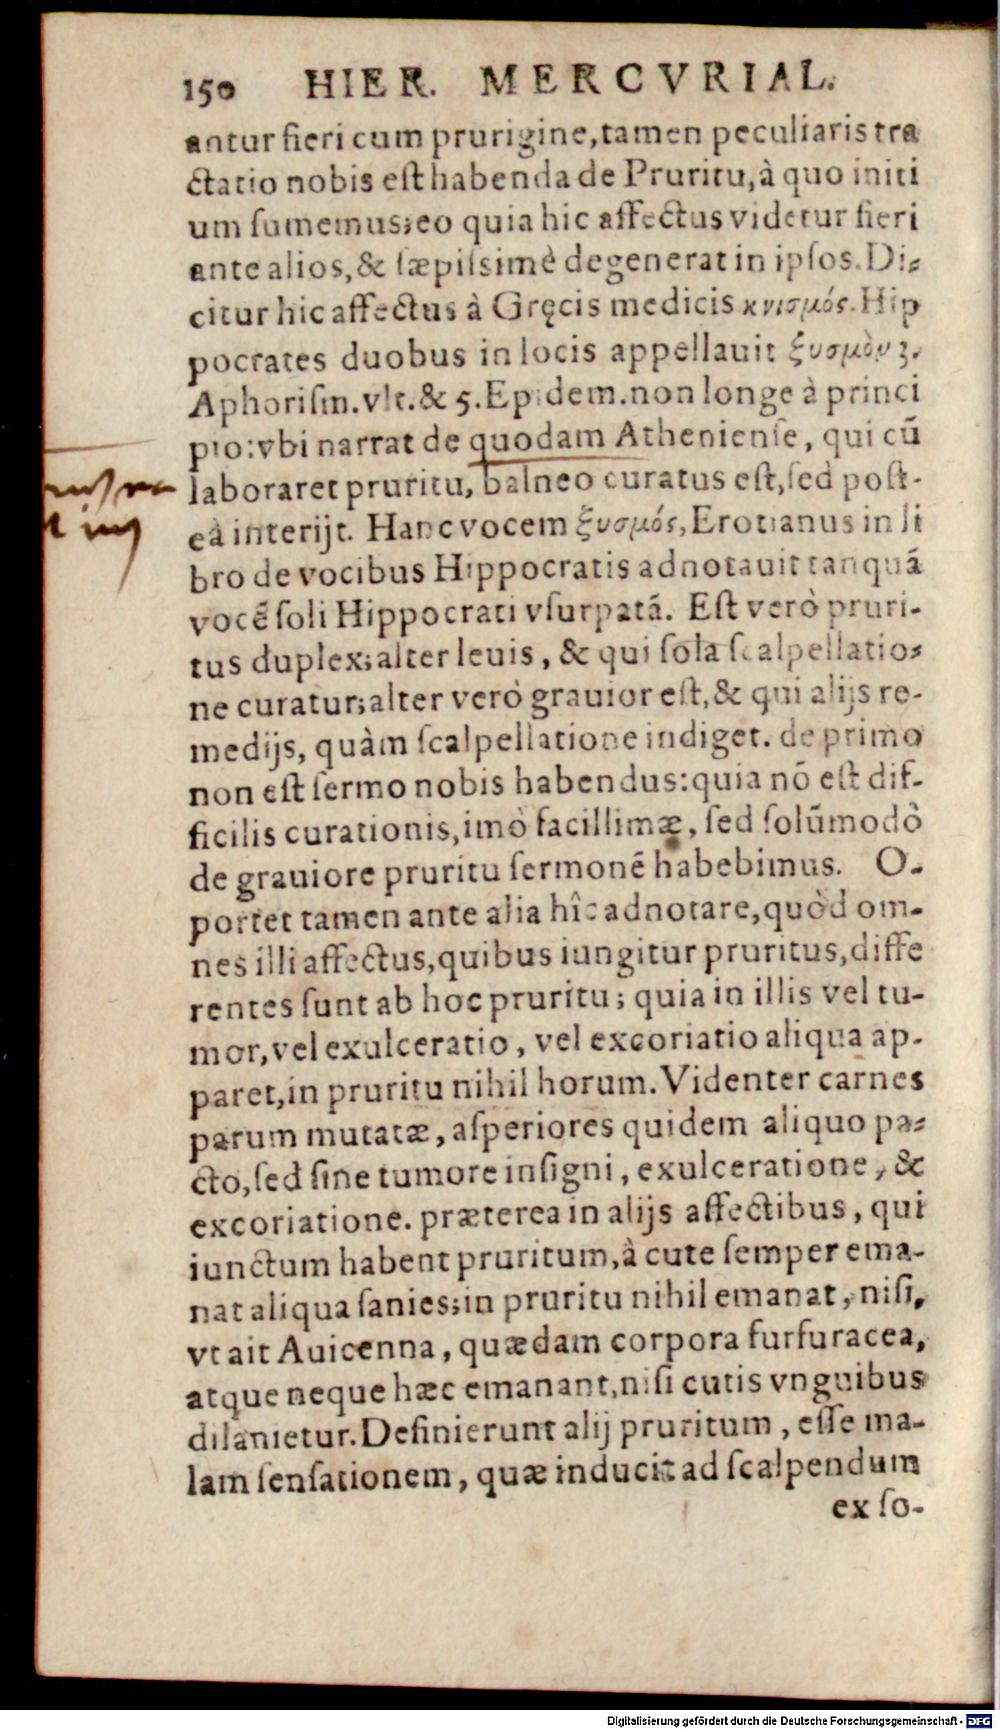 150 HIER. MERCVRIAL.
antur fieri cum prurigine, tamen peculiaris tra
ctatio nobis est habenda de Pruritu, à quo initi
um ſumemus; eo quia hic affectus videtur fieri
ante alios, & ſæpiſsimè degenerat in ipſos. Di-
citur hic affectus à Gręcis medicis κνισμός. Hip
pocrates duobus in locis appellauit ξυσμὸν 3.
Aphoriſm. vlt. & 5. Epidem. non longe à princi
pio: vbi narrat de quodam Athenienſe, qui cũ
laboraret pruritu, balneo curatus eſt, ſed poſt-
eà interijt. Hanc vocem ξυσμός, Erotianus in li
bro de vocibus Hippocratis adnotauit tanquã
vocẽ ſoli Hippocrati vſurpatã. Eſt verò pruri-
tus duplex; alter leuis, & qui ſola ſcalpellatio-
ne curatur; alter verò grauior eſt, & qui alijs re-
medijs, quàm ſcalpellatione indiget. de primo
non eſt ſermo nobis habendus: quia nõ eſt dif-
ficilis curationis, imò facillimæ, ſed ſolũmodò
de grauiore pruritu ſermonẽ habebimus. O-
portet tamen ante alia hîc adnotare, quòd om-
nes illi affectus, quibus iungitur pruritus, diffe
rentes ſunt ab hoc pruritu; quia in illis vel tu-
mor, vel exulceratio, vel excoriatio aliqua ap-
paret, in pruritu nihil horum. Videnter carnes
parum mutatæ, aſperiores quidem aliquo pa-
cto, ſed ſine tumore inſigni, exulceratione, &
excoriatione. præterea in alijs affectibus, qui
iunctum habent pruritum, à cute ſemper ema-
nat aliqua ſanies; in pruritu nihil emanat, niſi,
vt ait Auicenna, quædam corpora furfuracea,
atque neque hæc emanant, niſi cutis vnguibus
dilanietur. Definierunt alij pruritum, eſſe ma-
lam ſenſationem, quæ inducit ad ſcalpendum
ex ſo-
Digitalisierung gefördert durch die Deutsche Forschungsgemeinschaft - DFG